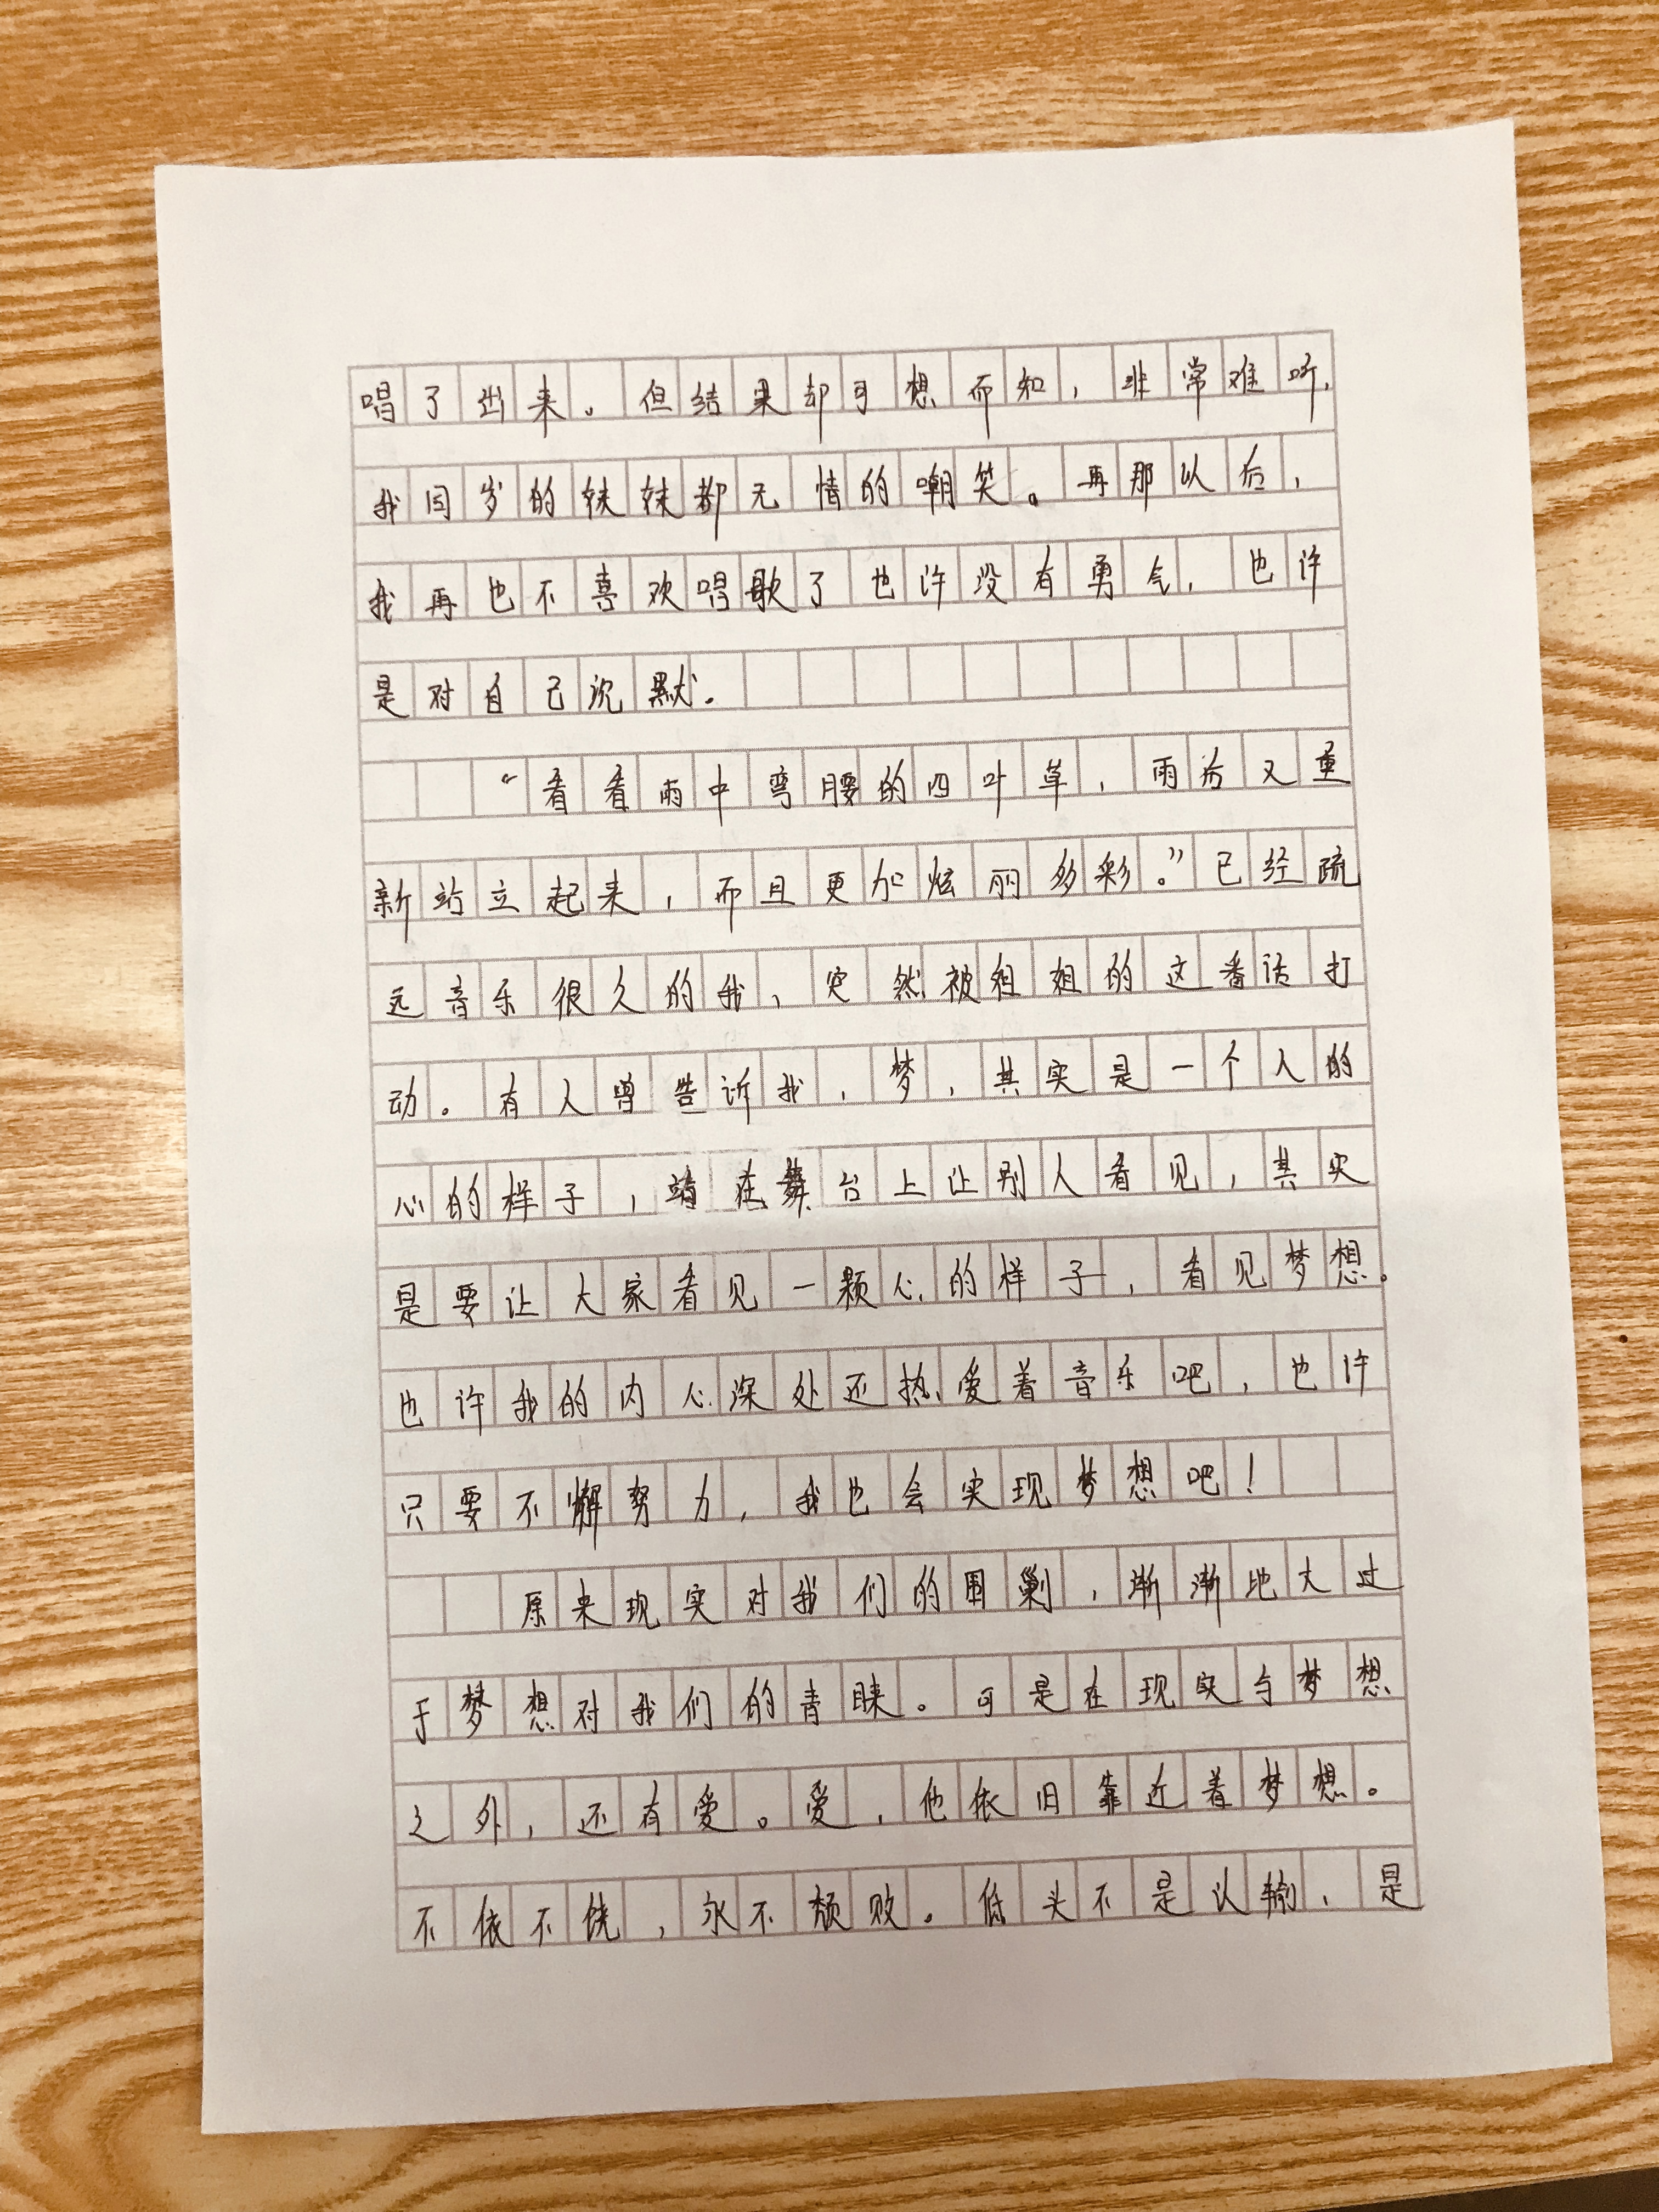 唱了出来。但结果却可想而知，非常难听，
我同岁的妹妹都无情的嘲笑。再那以后，
我再也不喜欢唱歌了也许没有勇气，也许
是对自己沉默。
“看看雨中弯腰的四叶草，雨后又重
新站立起来，而且更加炫丽多彩。”已经疏
远音乐很久的我，突然被祖姐的这番话打
动。有人曾告诉我，梦，其实是一个人的
心的样子，站在舞台上让别人看见，其实
是要让大家看见一颗心的样子，看见梦想。
也许我的内心深处还热爱着音乐吧，也许
只要不懈努力，我也会实现梦想吧！
原来现实对我们的围剿，渐渐地大过
于梦想对我们的青睐。可是在现实与梦想
之外，还有爱。爱，他依旧靠近着梦想。
不依不饶，永不颓败。低头不是认输，是